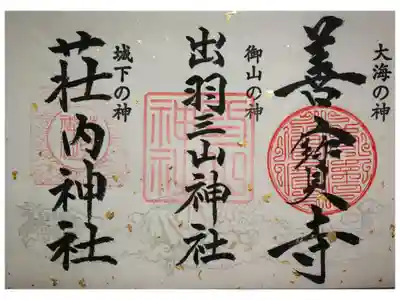 大海の神
善寳寺
御山の神
出羽三山神社
城下の神
荘内神社